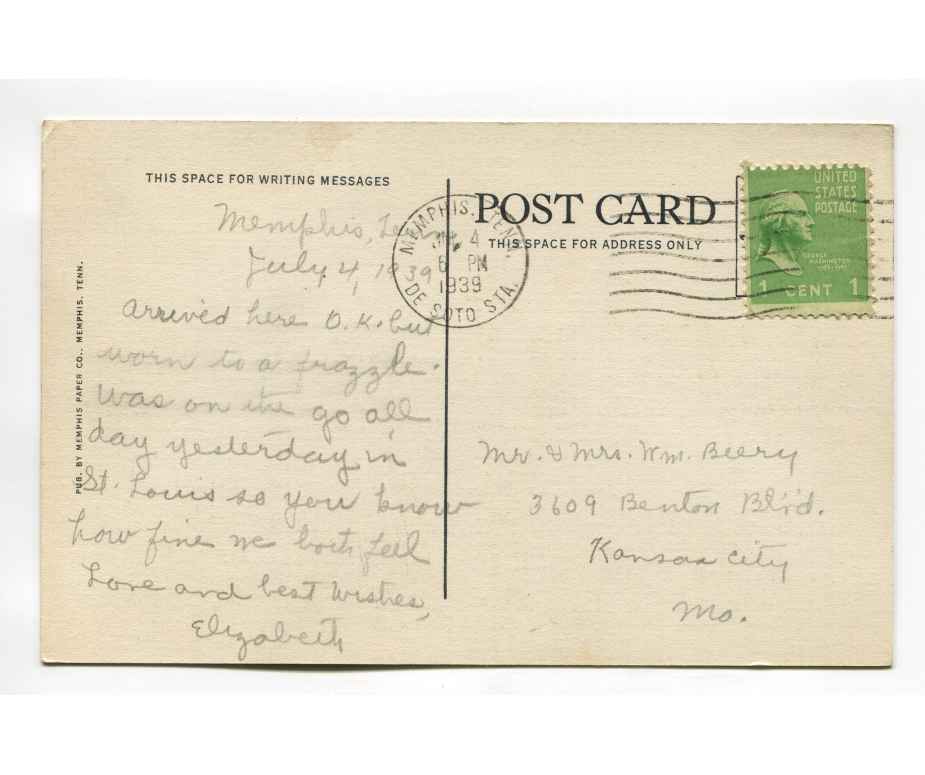 THIS SPACE FOR WRITING MESSAGES
Memphis, Tenn.
July 4, 1939
Arrived here O.K. but
worn to a frazzle.
Was on the go all
day yesterday in
St. Louis so you know
how fine we both feel
Love and best wishes,
Elizabeth
PUB. BY MEMPHIS PAPER CO., MEMPHIS, TENN.
POST CARD
THIS SPACE FOR ADDRESS ONLY
MEMPHIS, TENN.
4
6 PM
1939
DE SOTO STA.
UNITED
STATES
POSTAGE
GEORGE
WASHINGTON
1 CENT 1
Mr. & Mrs. Wm. Beery
3609 Benton Blv'd.
Kansas City
Mo.